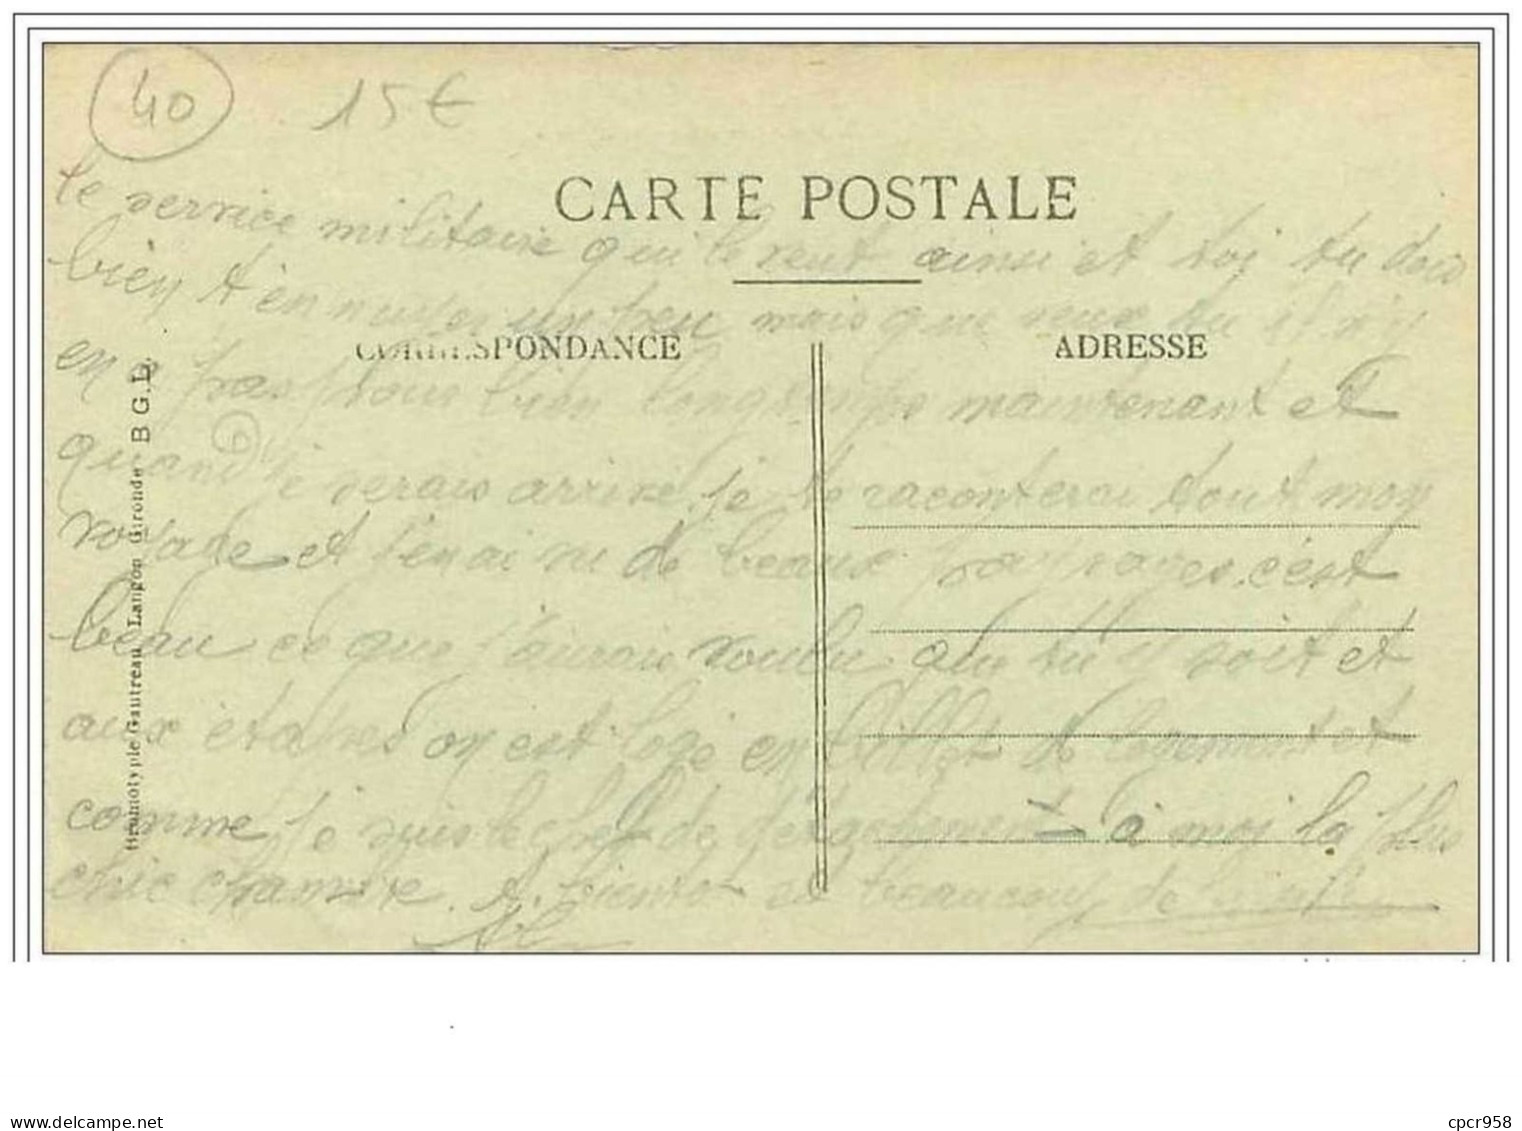 40 15€
CARTE POSTALE
le service militaire qui le veut ainsi et toi tu dois
bien t'ennuyer un peu mais que veux tu il n'y
CORRESPONDANCE ADRESSE
en a pas pour bien longtemps maintenant et
quand je serais arrivé je te raconterai tout mon
voyage et j'en ai vu de beaux paysages c'est
beau ce que j'aurais voulu que tu y soit et
aux étapes on est logé en billet de logement et
comme je suis le chef de détachement à moi la plus
chic chambre. A bientôt et beaucoup de
Bromotypie Gautreau, Langon Gironde B G.L.
delcampe.net cpcr958